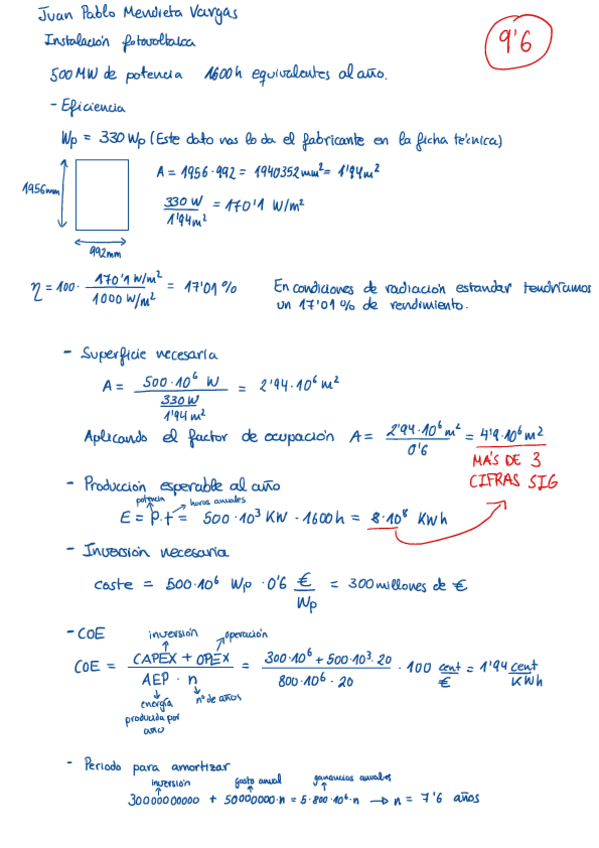 Juan Pablo Mendieta Vargas
9'6
Instalación fotovoltaica
500 MW de potencia 1600 h equivalentes al año.
- Eficiencia
Wp = 330 Wp (Este dato nos lo da el fabricante en la ficha técnica)
1956mm
992mm
A = 1956·992 = 1940352 mm² = 1'94 m²
330 W / 1'94 m² = 170'1 W/m²
η = 100 · 170'1 W/m² / 1000 W/m² = 17'01 %
En condiciones de radiación estandar tendríamos
un 17'01 % de rendimiento.
- Superficie necesaria
A = 500·10⁶ W / (330 W / 1'94 m²) = 2'94·10⁶ m²
Aplicando el factor de ocupación A = 2'94·10⁶ m² / 0'6 = 4'9·10⁶ m²
MÁS DE 3
CIFRAS SIG
- Producción esperable al año
potencia
horas anuales
E = P·t = 500·10³ KW · 1600 h = 8·10⁸ KWh
- Inversión necesaria
coste = 500·10⁶ Wp · 0'6 € / Wp = 300 millones de €
- COE
inversión
operación
COE = CAPEX + OPEX / AEP · n = 300·10⁶ + 500·10³·20 / 800·10⁶ · 20 · 100 cent / € = 1'94 cent / KWh
energía
producida por
año
nº de años
- Periodo para amortizar
inversión
gasto anual
ganancias anuales
30000000000 + 50000000·n = 5·800·10⁶·n → n = 7'6 años